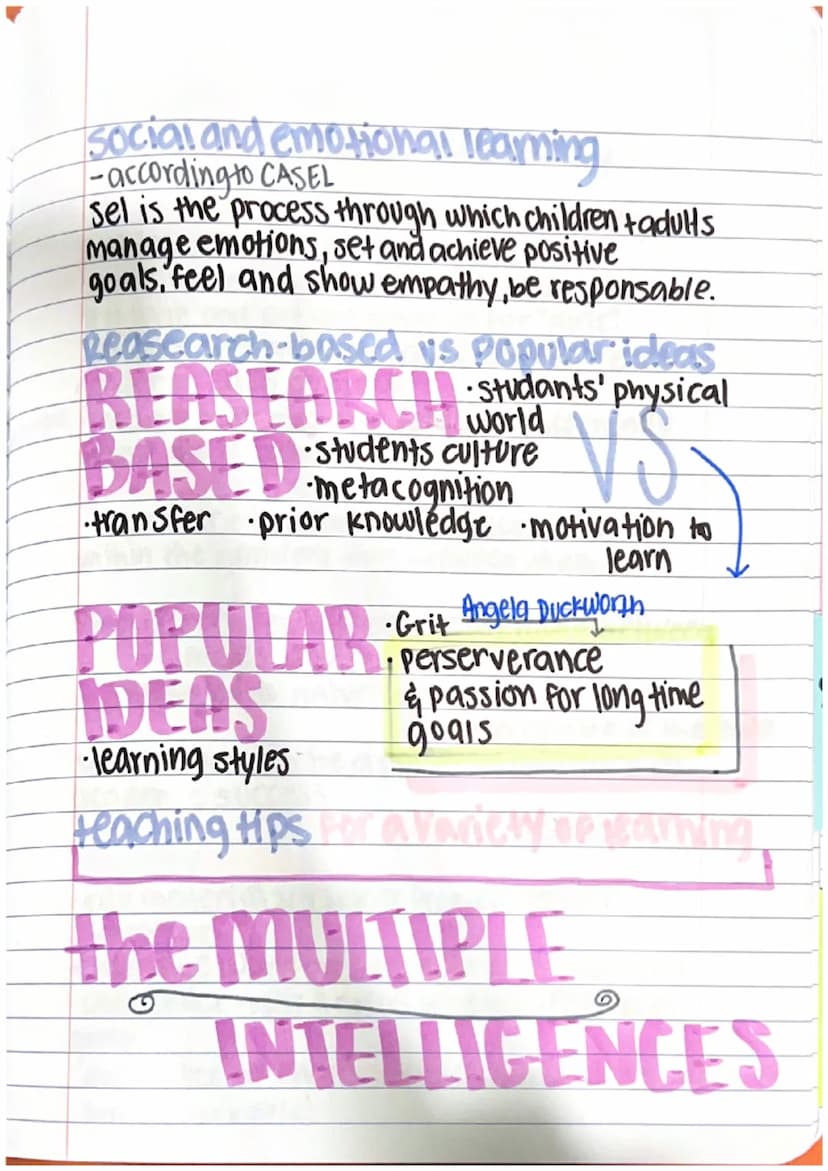 social and emotional learning
- according to CASEL
sel is the process through which children + adults
manage emotions, set and achieve positive
goals, feel and show empathy, be responsable.
Reasearch-based vs popular ideas
REASEARCH
BASED
• studants' physical
world
• students culture
• metacognition
• transfer • prior knowledge • motivation to
learn
VS
POPULAR
IDEAS
• Grit Angela Duckworth
• perserverance
& passion for long time
goals
• learning styles
teaching tips for a variety of learning
the MULTIPLE
INTELLIGENCES